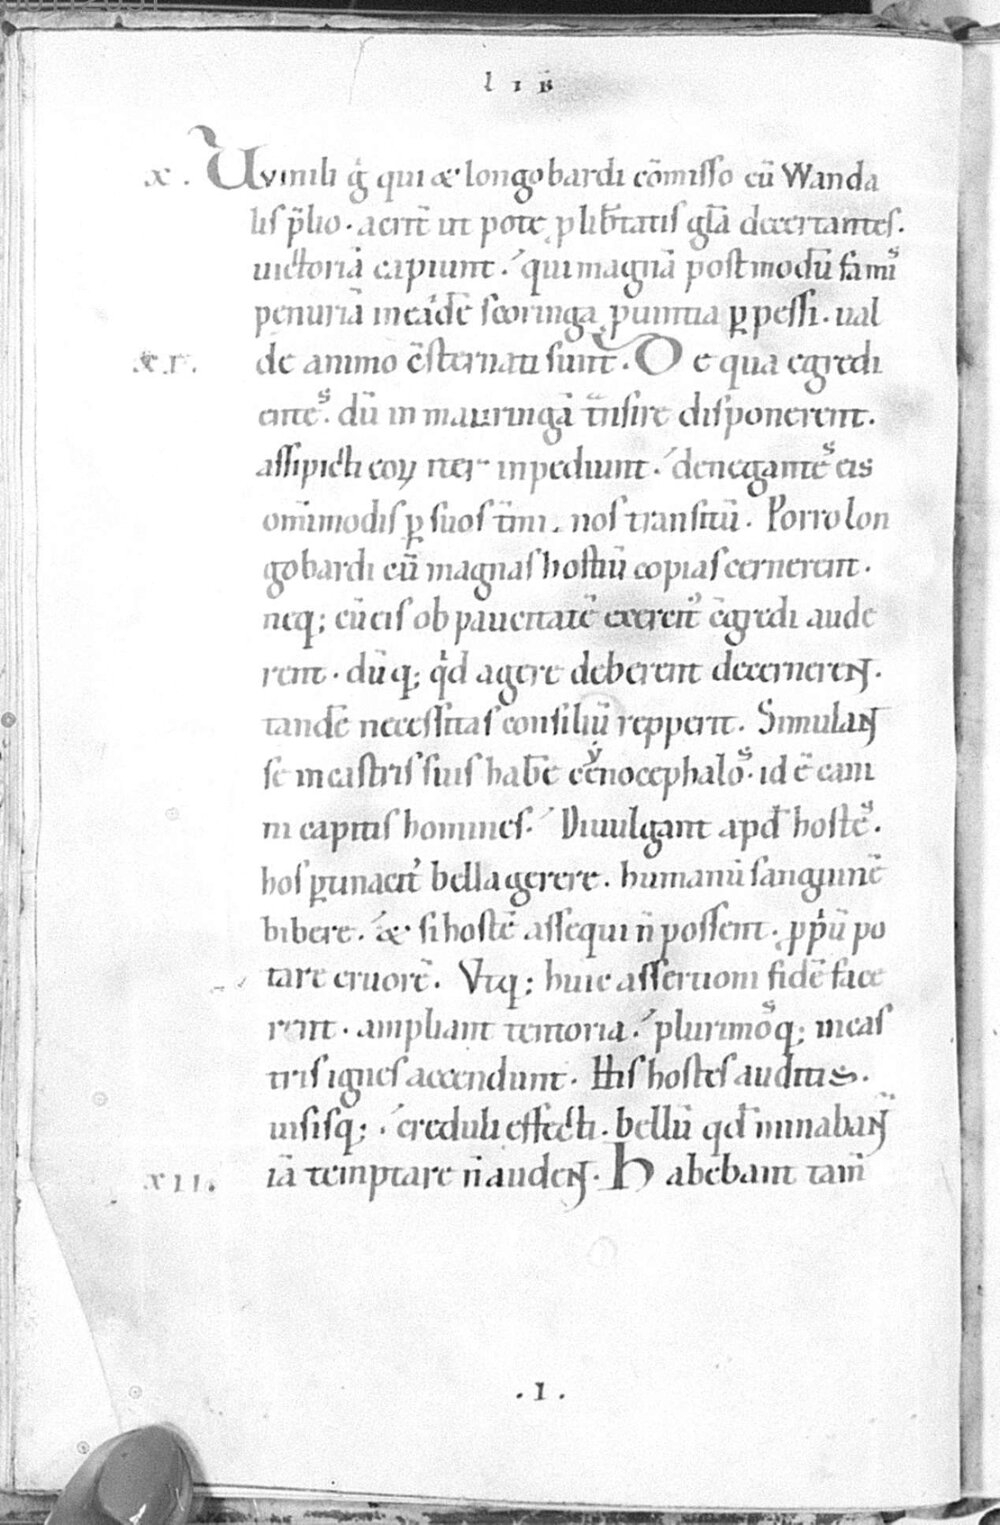 LIB
x. Uuinili g̊ qui & longobardi cōmisso cū Wanda
lis p̄lio. acrit̄ ut pote p lib̄tatis gl̄a decertantes.
uictoriā capiunt. qui magnā postmodū famis
penuriā in eadē scoringa puintia ꝑpessi. ual
xi. de animo cōsternati sunt. De qua egredi
entes. dū in mauringā t̄nsire disponerent.
assipicti eoꝝ iter inpediunt. denegantes eis
omīmodis ꝑ suos t̄minos transitū. Porro lon
gobardi cū magnas hostiū copias cernerent.
neq; cū eis ob paucitatē exercit᾽ cōgredi aude
rent. dūq; qd agere deberent decerneren̄t.
tandē necessitas consiliū repperit. Simulant
se in castris suis habēe cynocephalos. id ē cani
ni capitis homines. Diuulgant apd̄ hostes.
hos ꝑtinacit᾽ bella gerere. humanū sanguinē
bibere. & si hostē assequi n̄ possent. ppriū po
tare cruorē. Vtq; huic assertioni fidē face
rent. ampliant tentoria. plurimosq; in cas
tris ignes accendunt. His hostes auditis.
uisisq; creduli effecti. bellū qd̄ minabantur
xii. iā temptare n̄ audent. Habebant tam̄
.I.